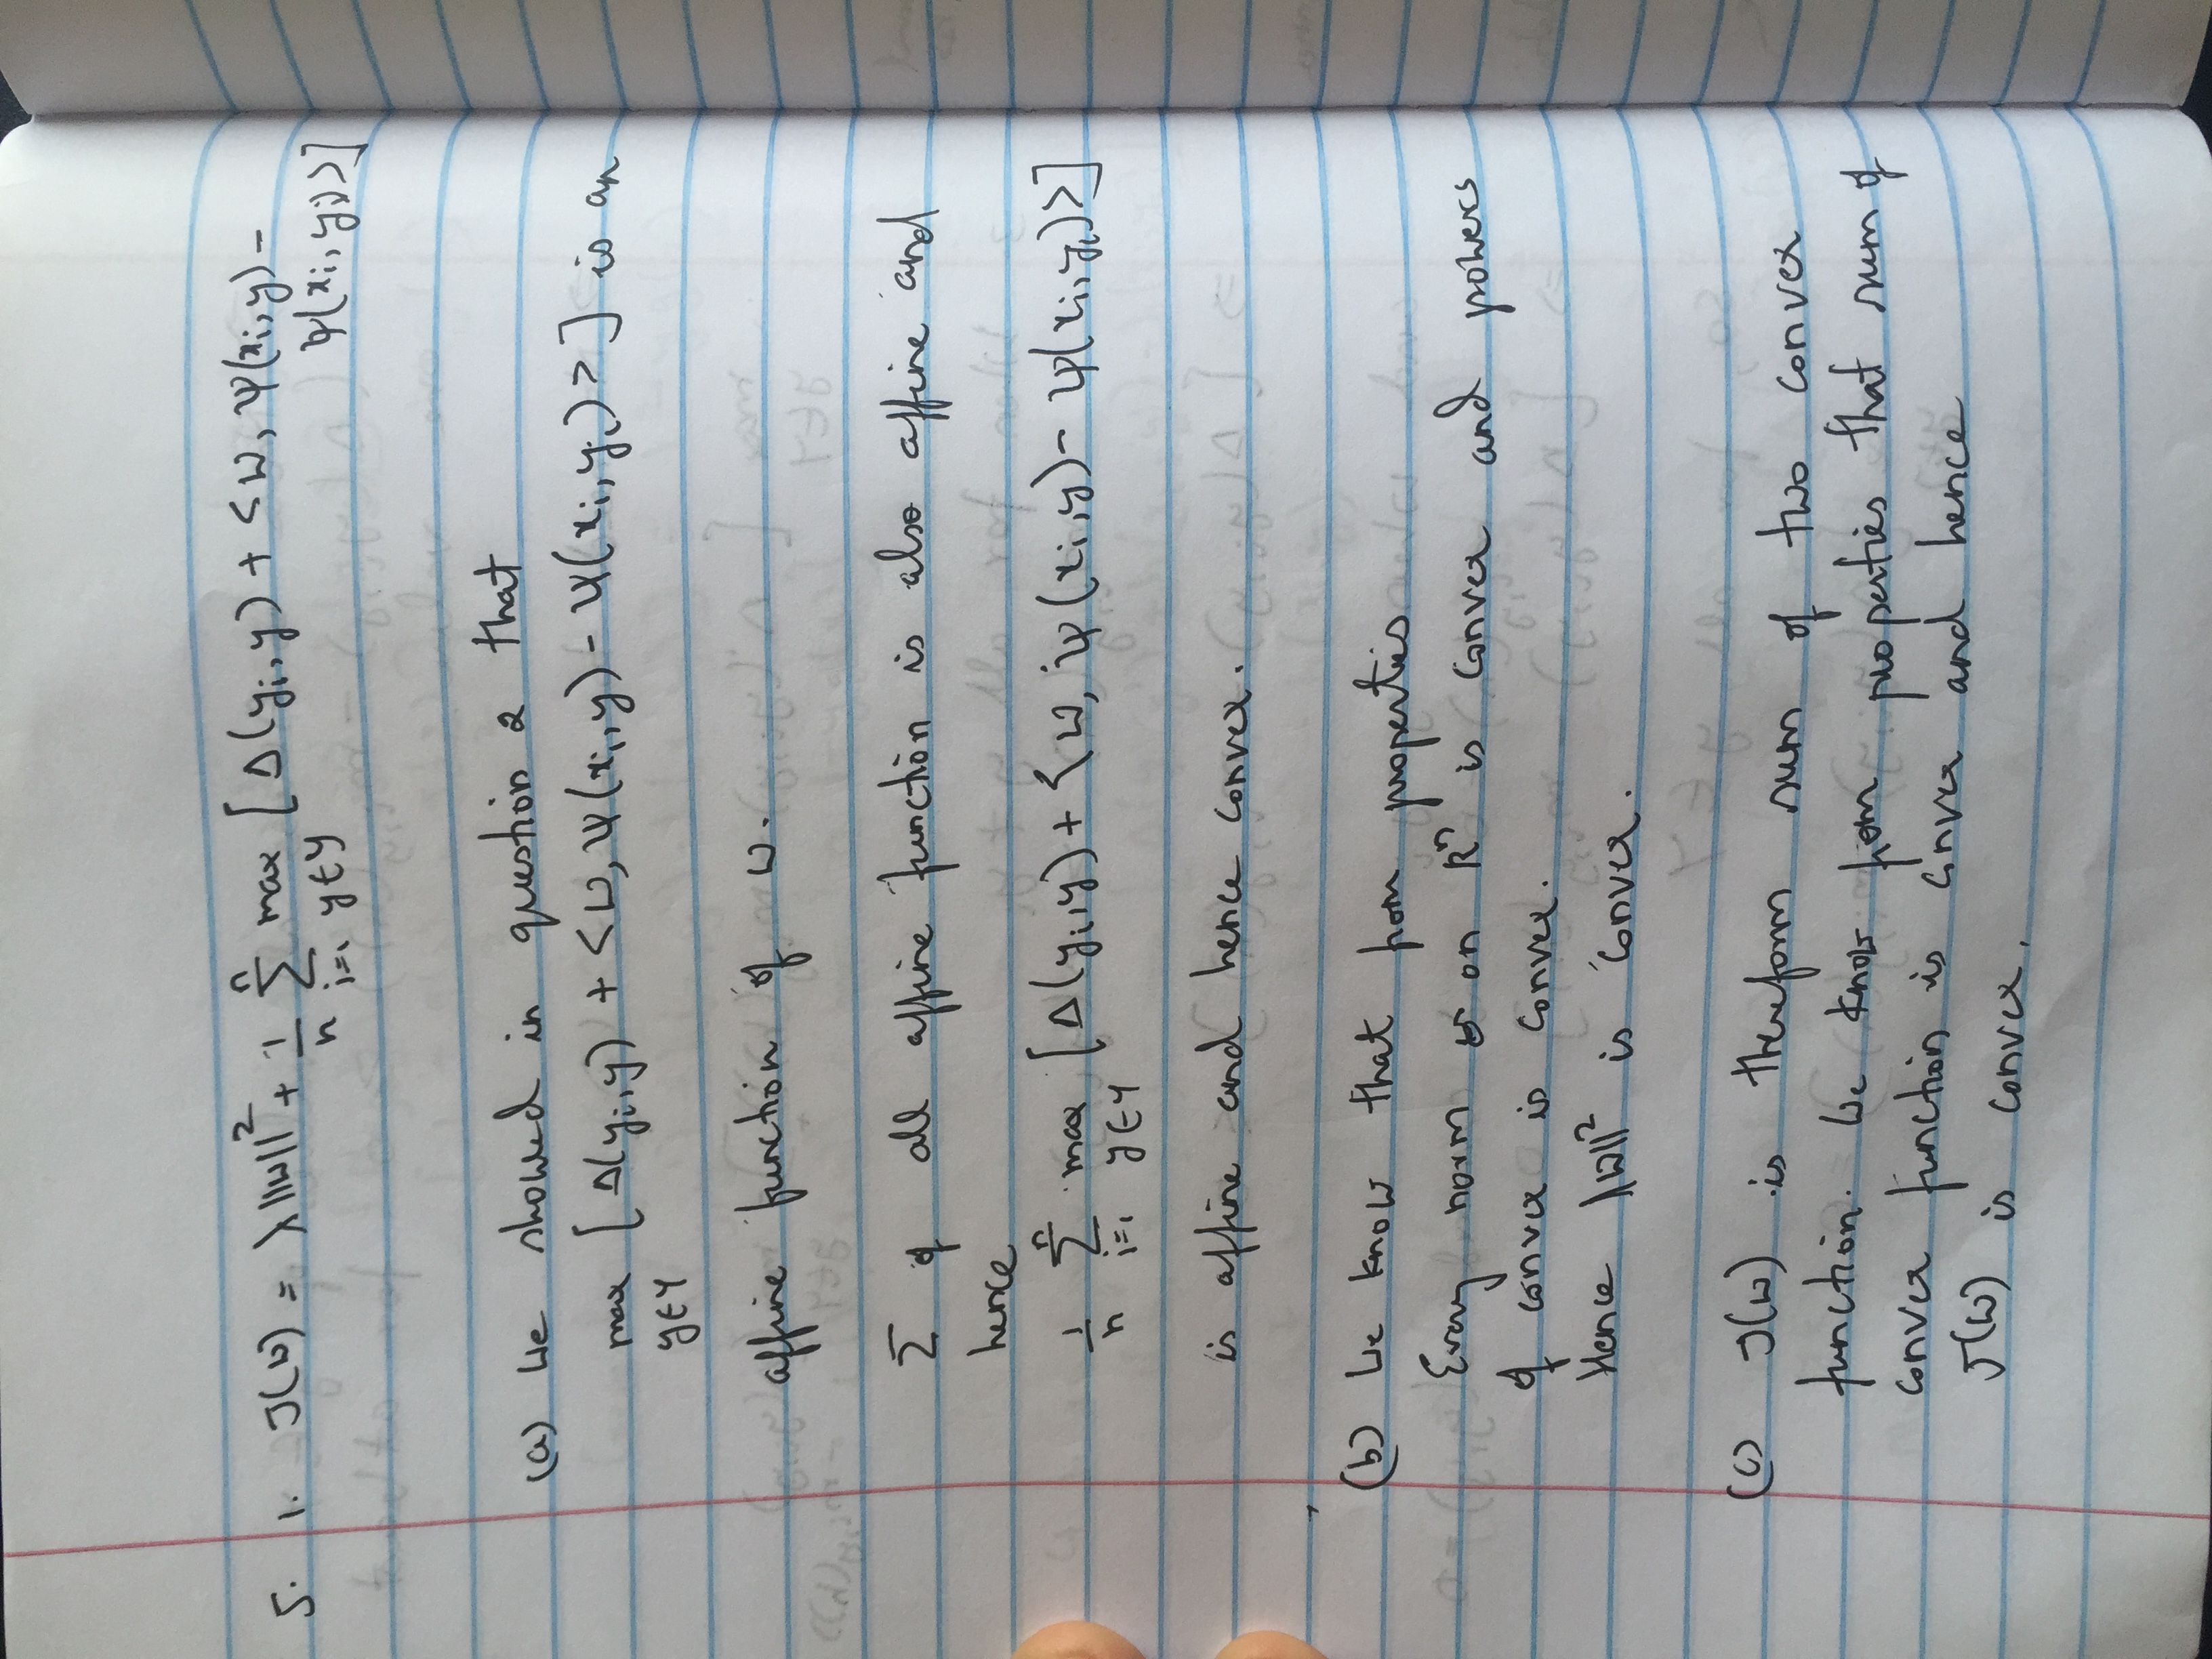 5. 1. J(w) = λ||w||² + 1/n Σ_{i=1}^{n} max_{y∈Y} [Δ(y_i, y) + <w, Ψ(x_i, y) -
Ψ(x_i, y_i)>]
(a) We showed in question 2 that
max_{y∈Y} [Δ(y_i, y) + <w, Ψ(x_i, y) - Ψ(x_i, y_i)>] is an
affine function of w.
Σ of all affine function is also affine and
hence
1/n Σ_{i=1}^{n} max_{y∈Y} [Δ(y_i, y) + <w, Ψ(x_i, y) - Ψ(x_i, y_i)>]
is affine and hence convex.
(b) We know that from properties
Every norm on Rⁿ is convex and powers
of convex is convex.
Hence ||w||² is convex.
(c) J(w) is therefore sum of two convex
function. We know from properties that sum of
convex function is convex and hence
J(w) is convex.